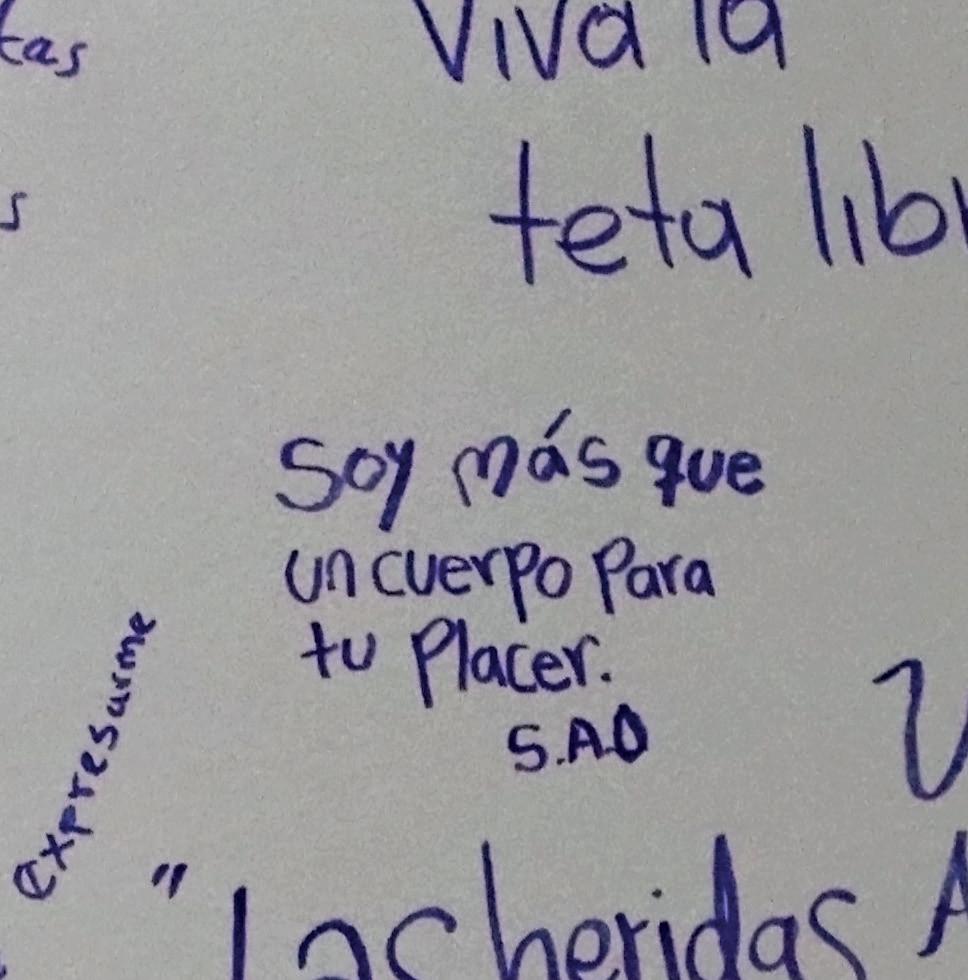 Viva la
teta
Soy más que
un cuerpo para
tu placer.
S.A.O
expresarme
"Las heridas